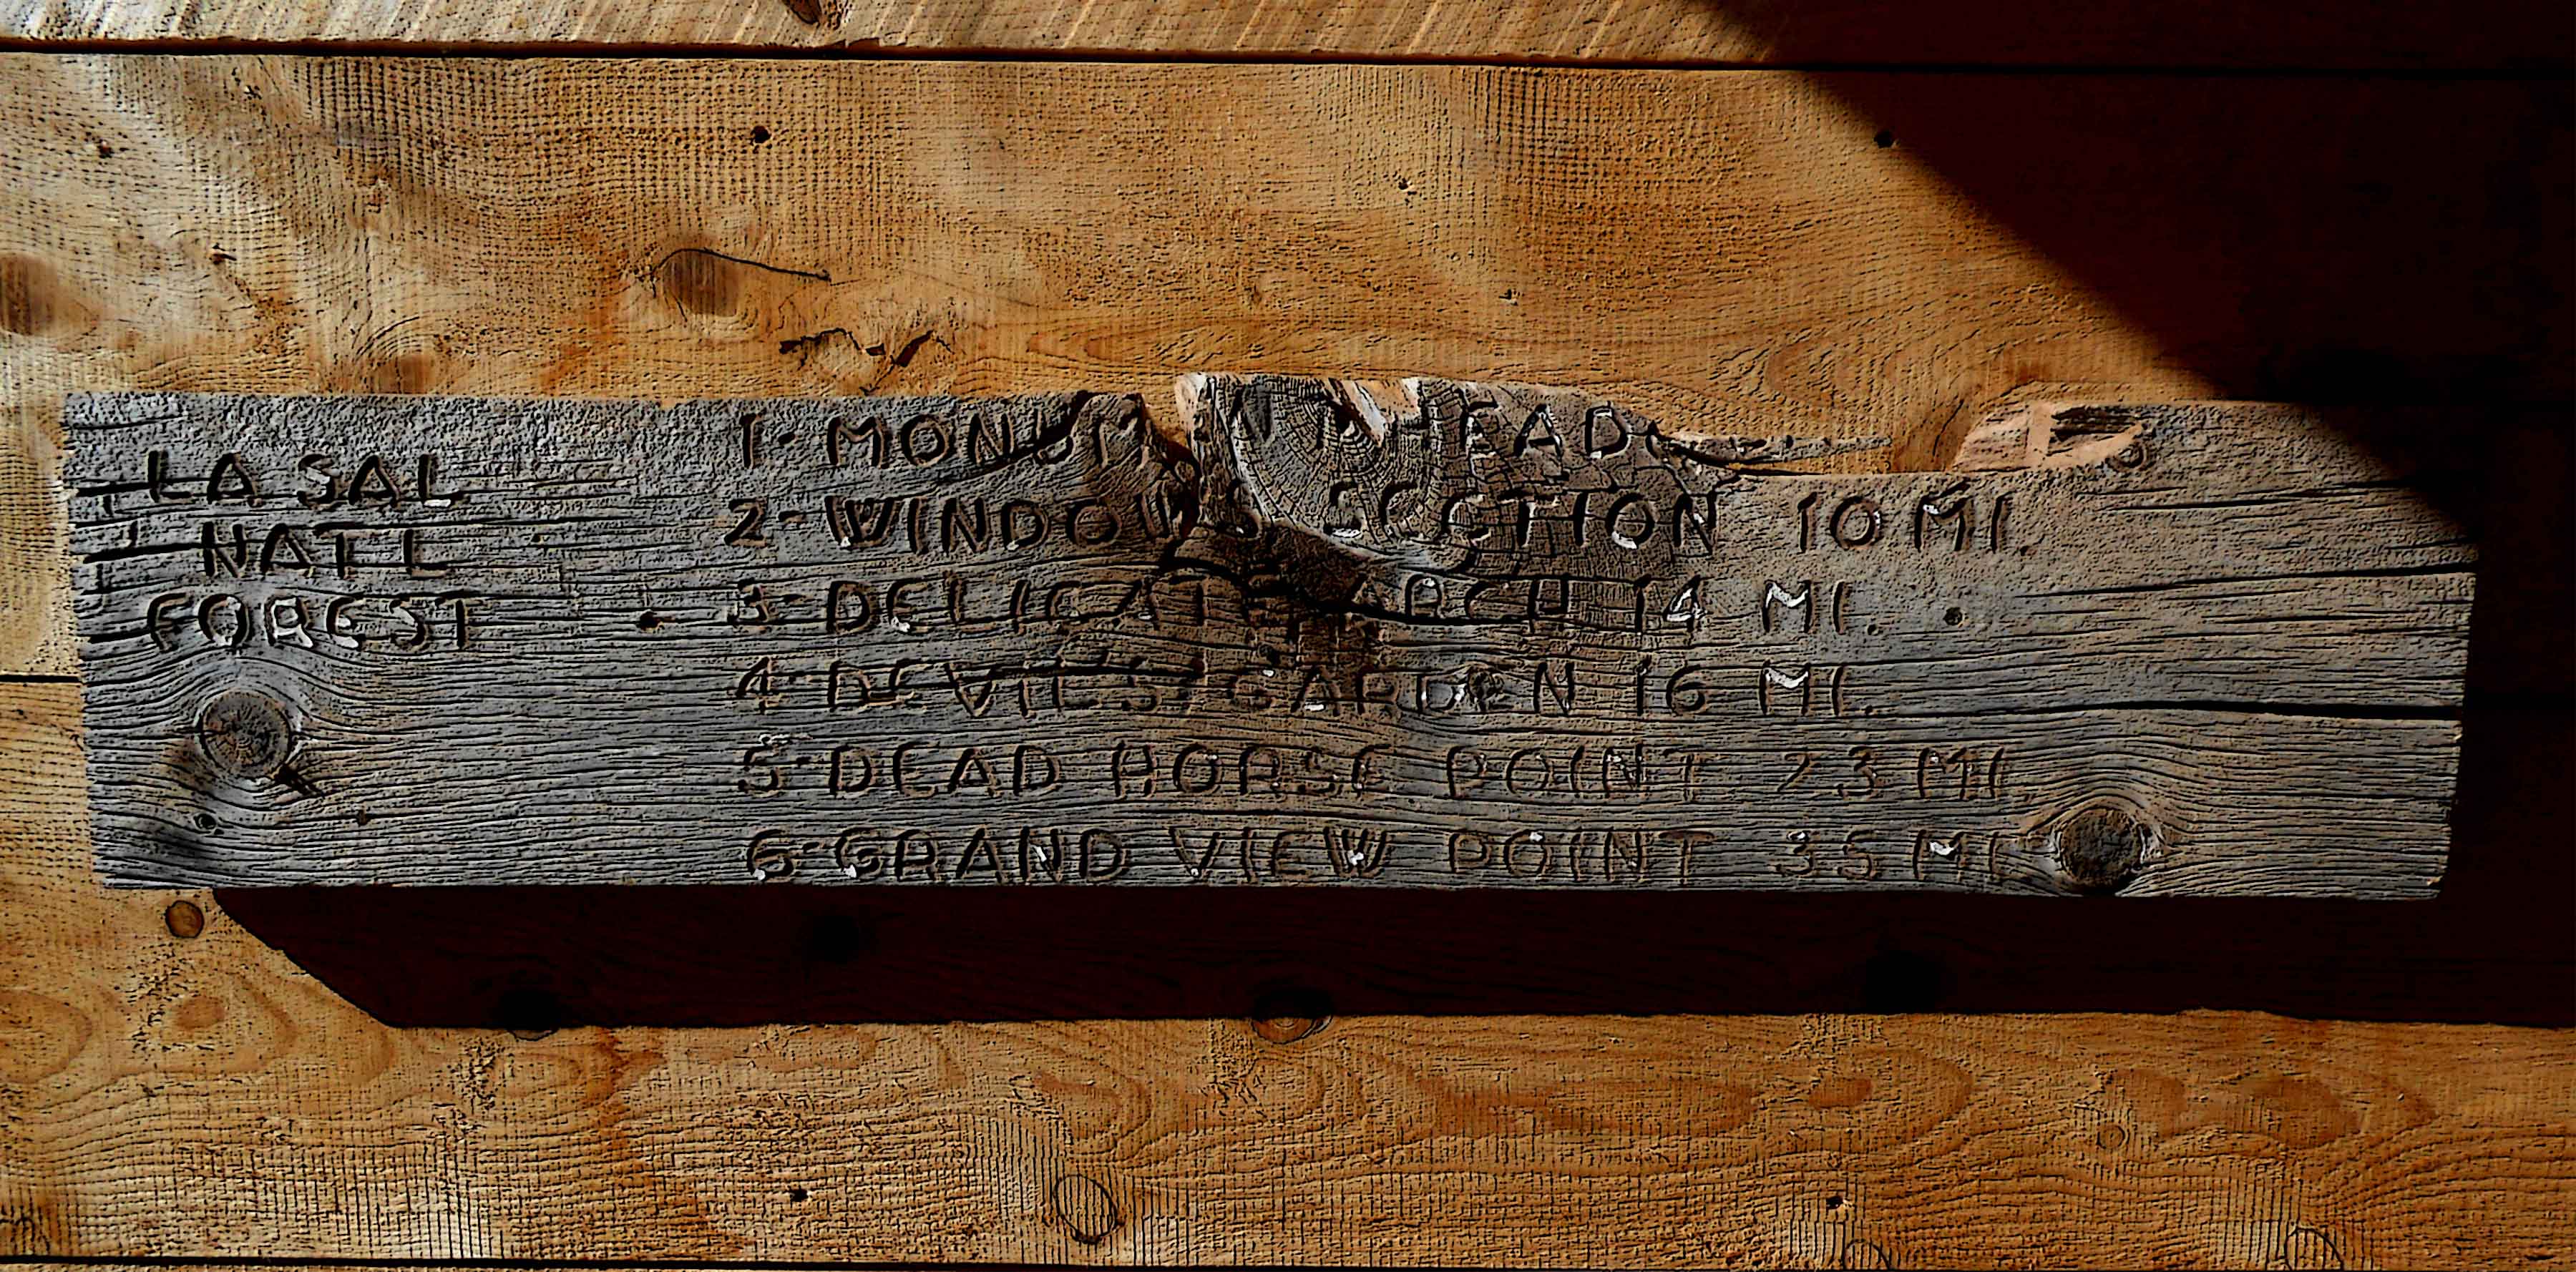 LA SAL
NATL
FOREST
1- HEAD
2- WINDOWS SECTION 10 MI.
3- DELICATE ARCH 14 MI.
4- DEVILS GARDEN 16 MI.
5- DEAD HORSE POINT 23 MI.
6- GRAND VIEW POINT 35 MI.